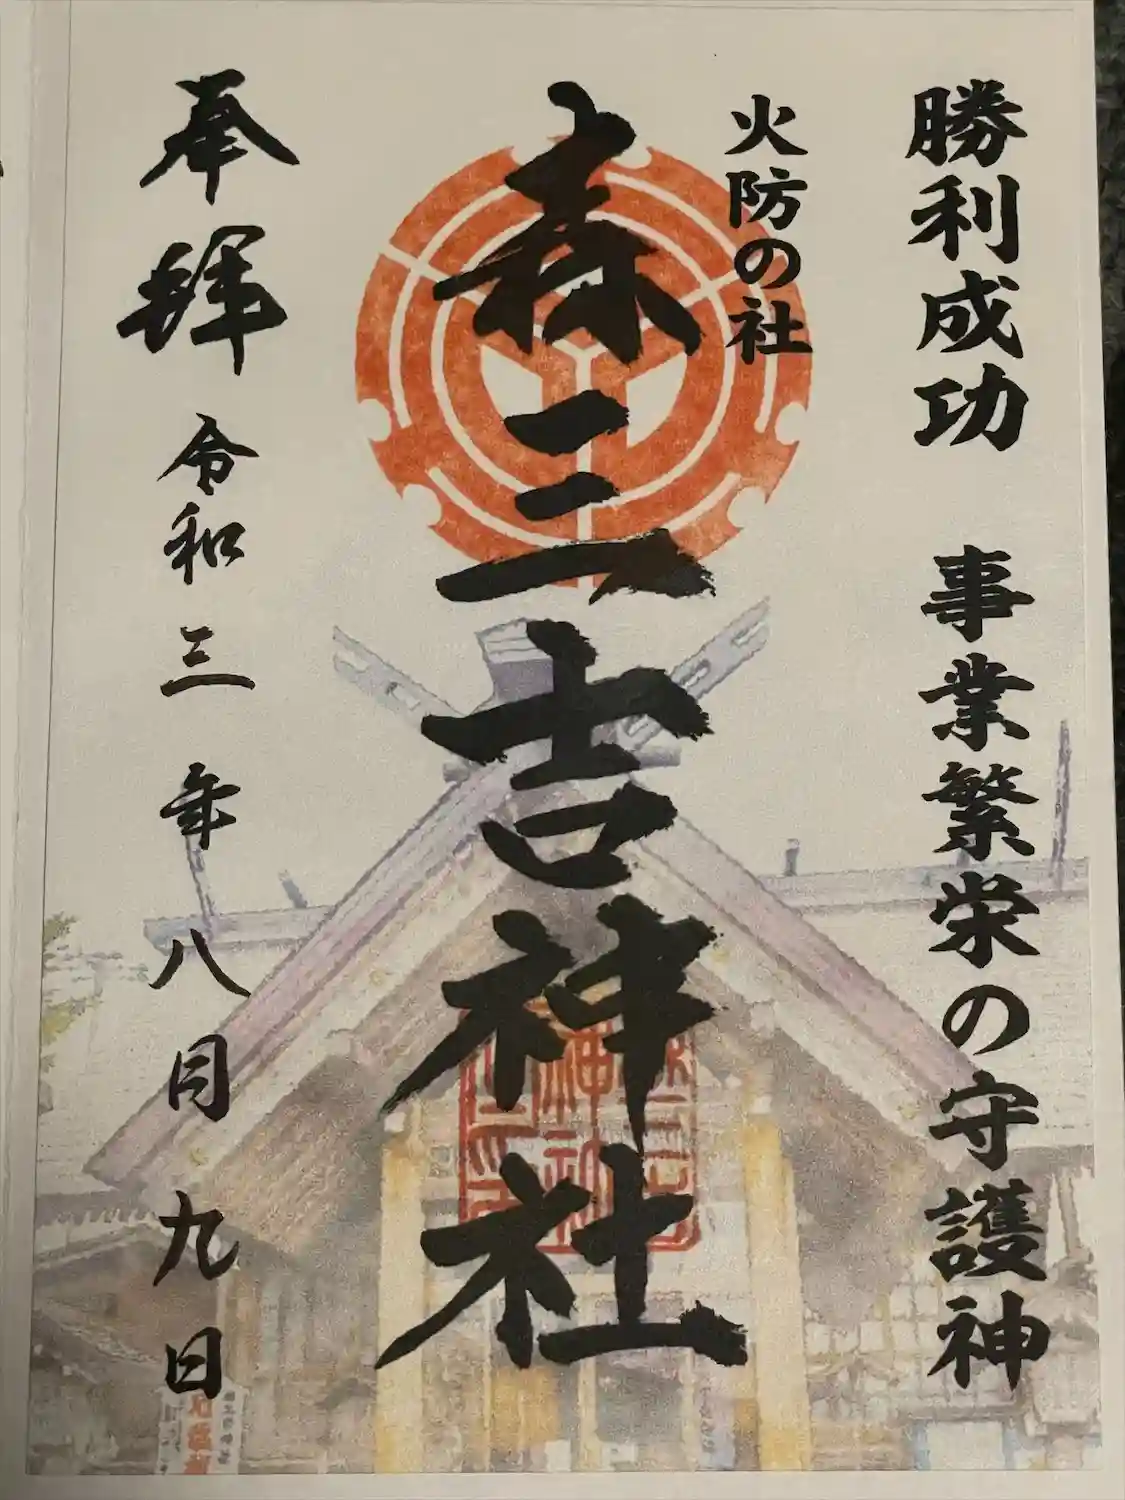 勝利成功 事業繁栄の守護神
火防の社
森三吉神社
奉拝 令和三年八月九日